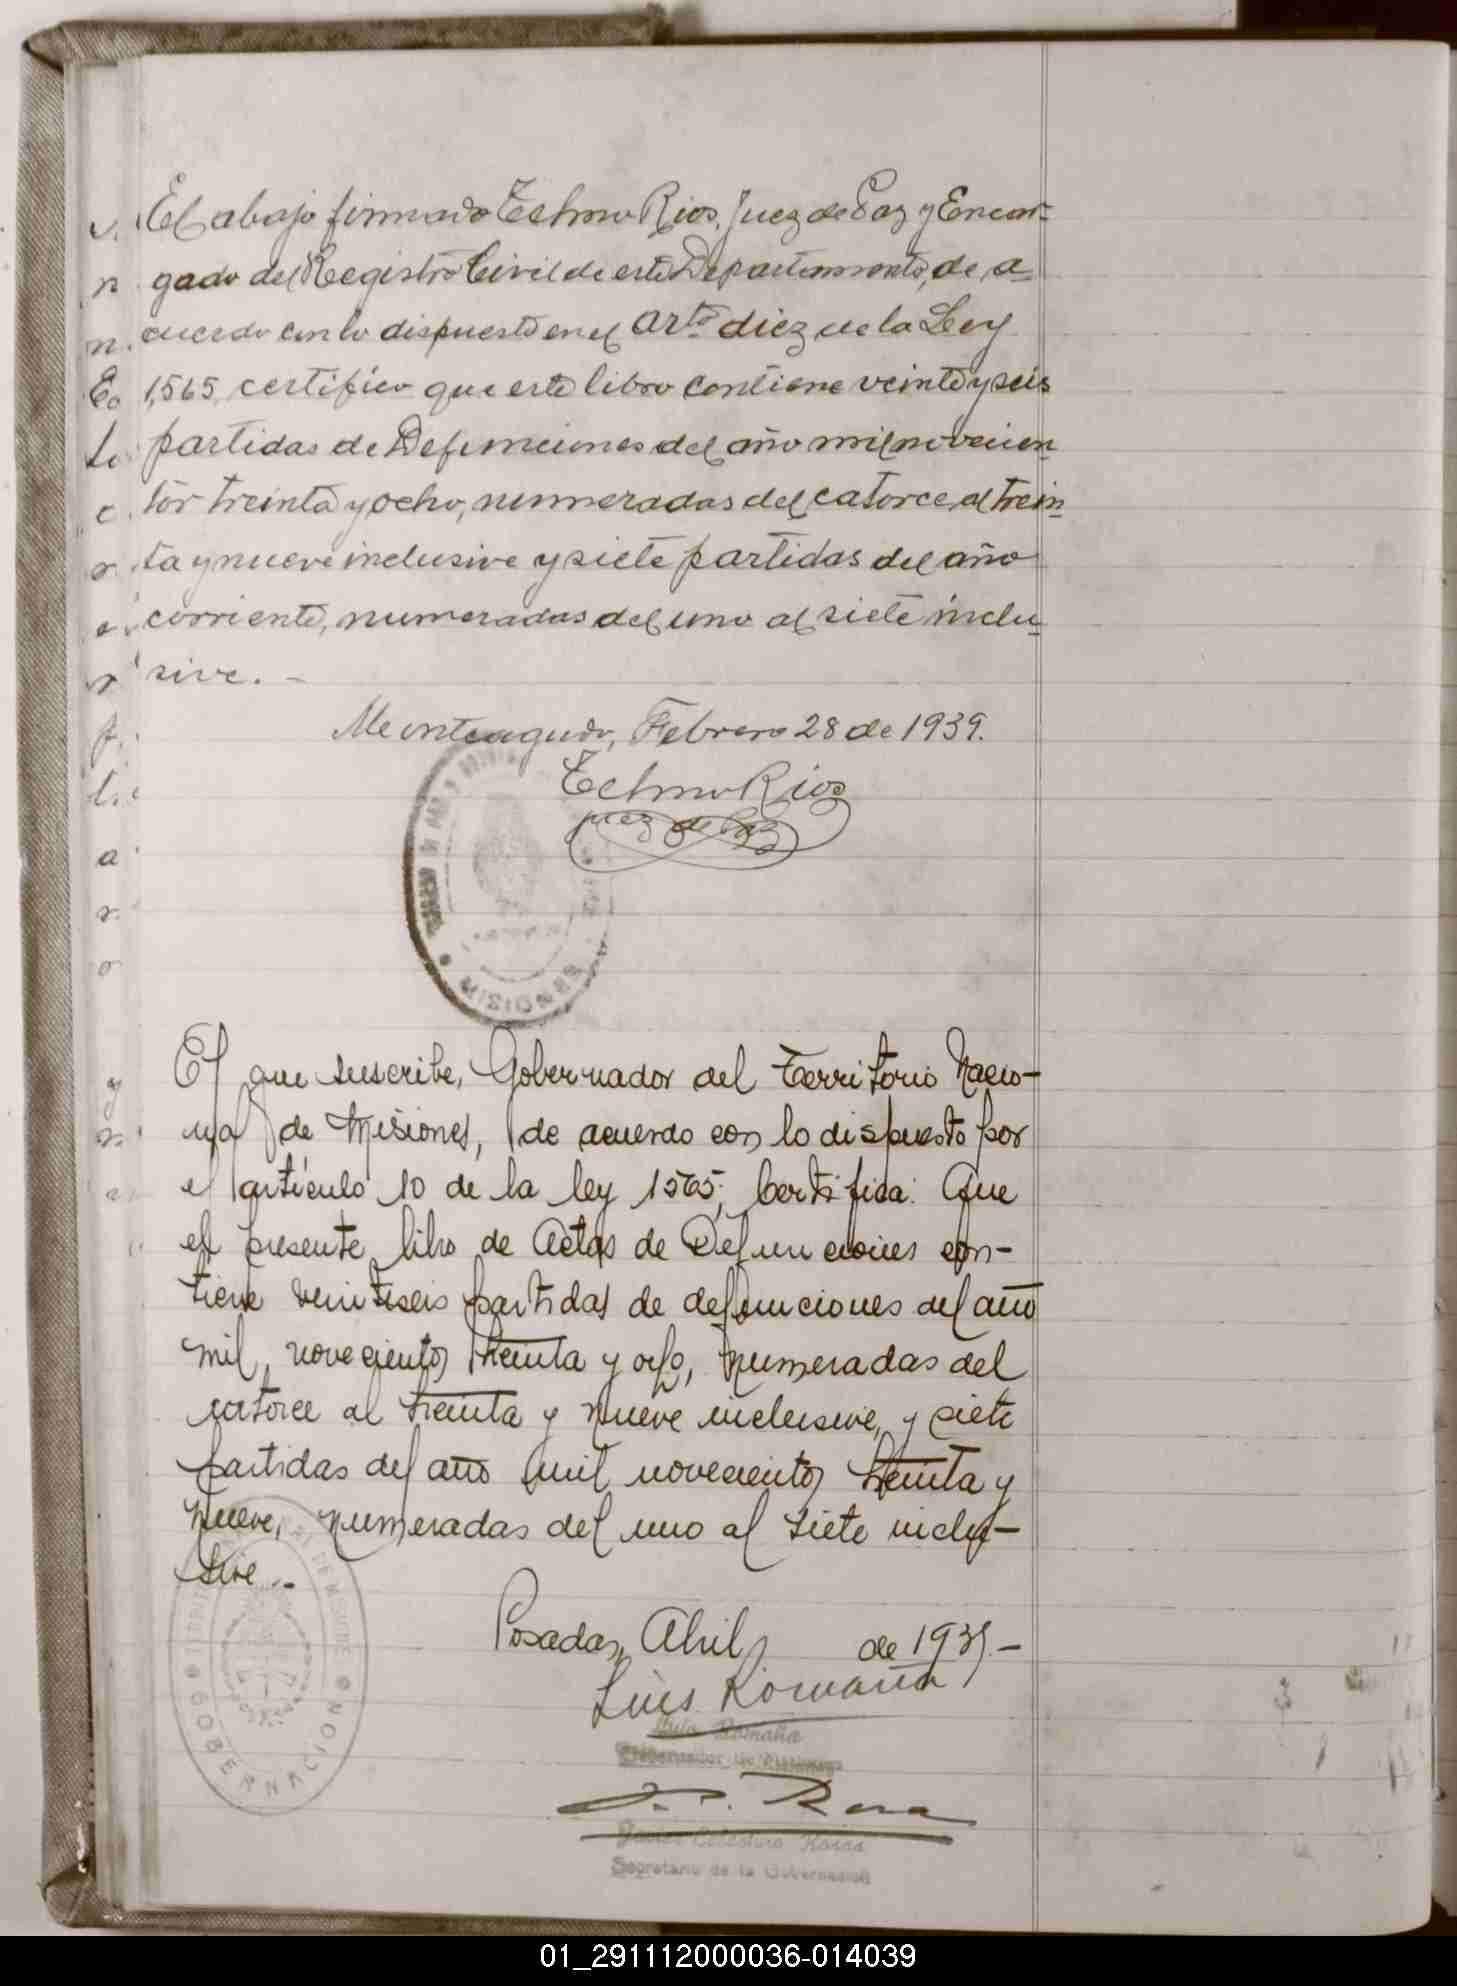 El abajo firmado Telmo Rios, Juez de Paz y Encar-
gado del Registro Civil de este Departamento, de a-
cuerdo con lo dispuesto en el Arto diez de la Ley
1,565 certifico que este libro contiene veinte y seis
partidas de Defunciones del año mil novecien-
tos treinta y ocho, numeradas del catorce al trein-
ta y nueve inclusive y siete partidas del año
corriente, numeradas del uno al siete inclu-
sive. -
Monteagudo, Febrero 28 de 1939.
Telmo Rios
Juez de Paz
MISIONES
El que suscribe, Gobernador del Territorio Nacio-
nal de Misiones, de acuerdo con lo dispuesto por
el artículo 10 de la ley 1565; Certifica: Que
el presente libro de Actas de Defunciones con-
tiene veintiseis partidas de defunciones del año
mil novecientos treinta y ocho, numeradas del
catorce al treinta y nueve inclusive, y siete
partidas del año mil novecientos treinta y
nueve, numeradas del uno al siete inclu-
sive.-
GOBERNACION
Posadas, Abril de 1939.-
Luis Romaña
Luis Romaña
Gobernador de Misiones
Secretario de la Gobernación
01_291112000036-014039